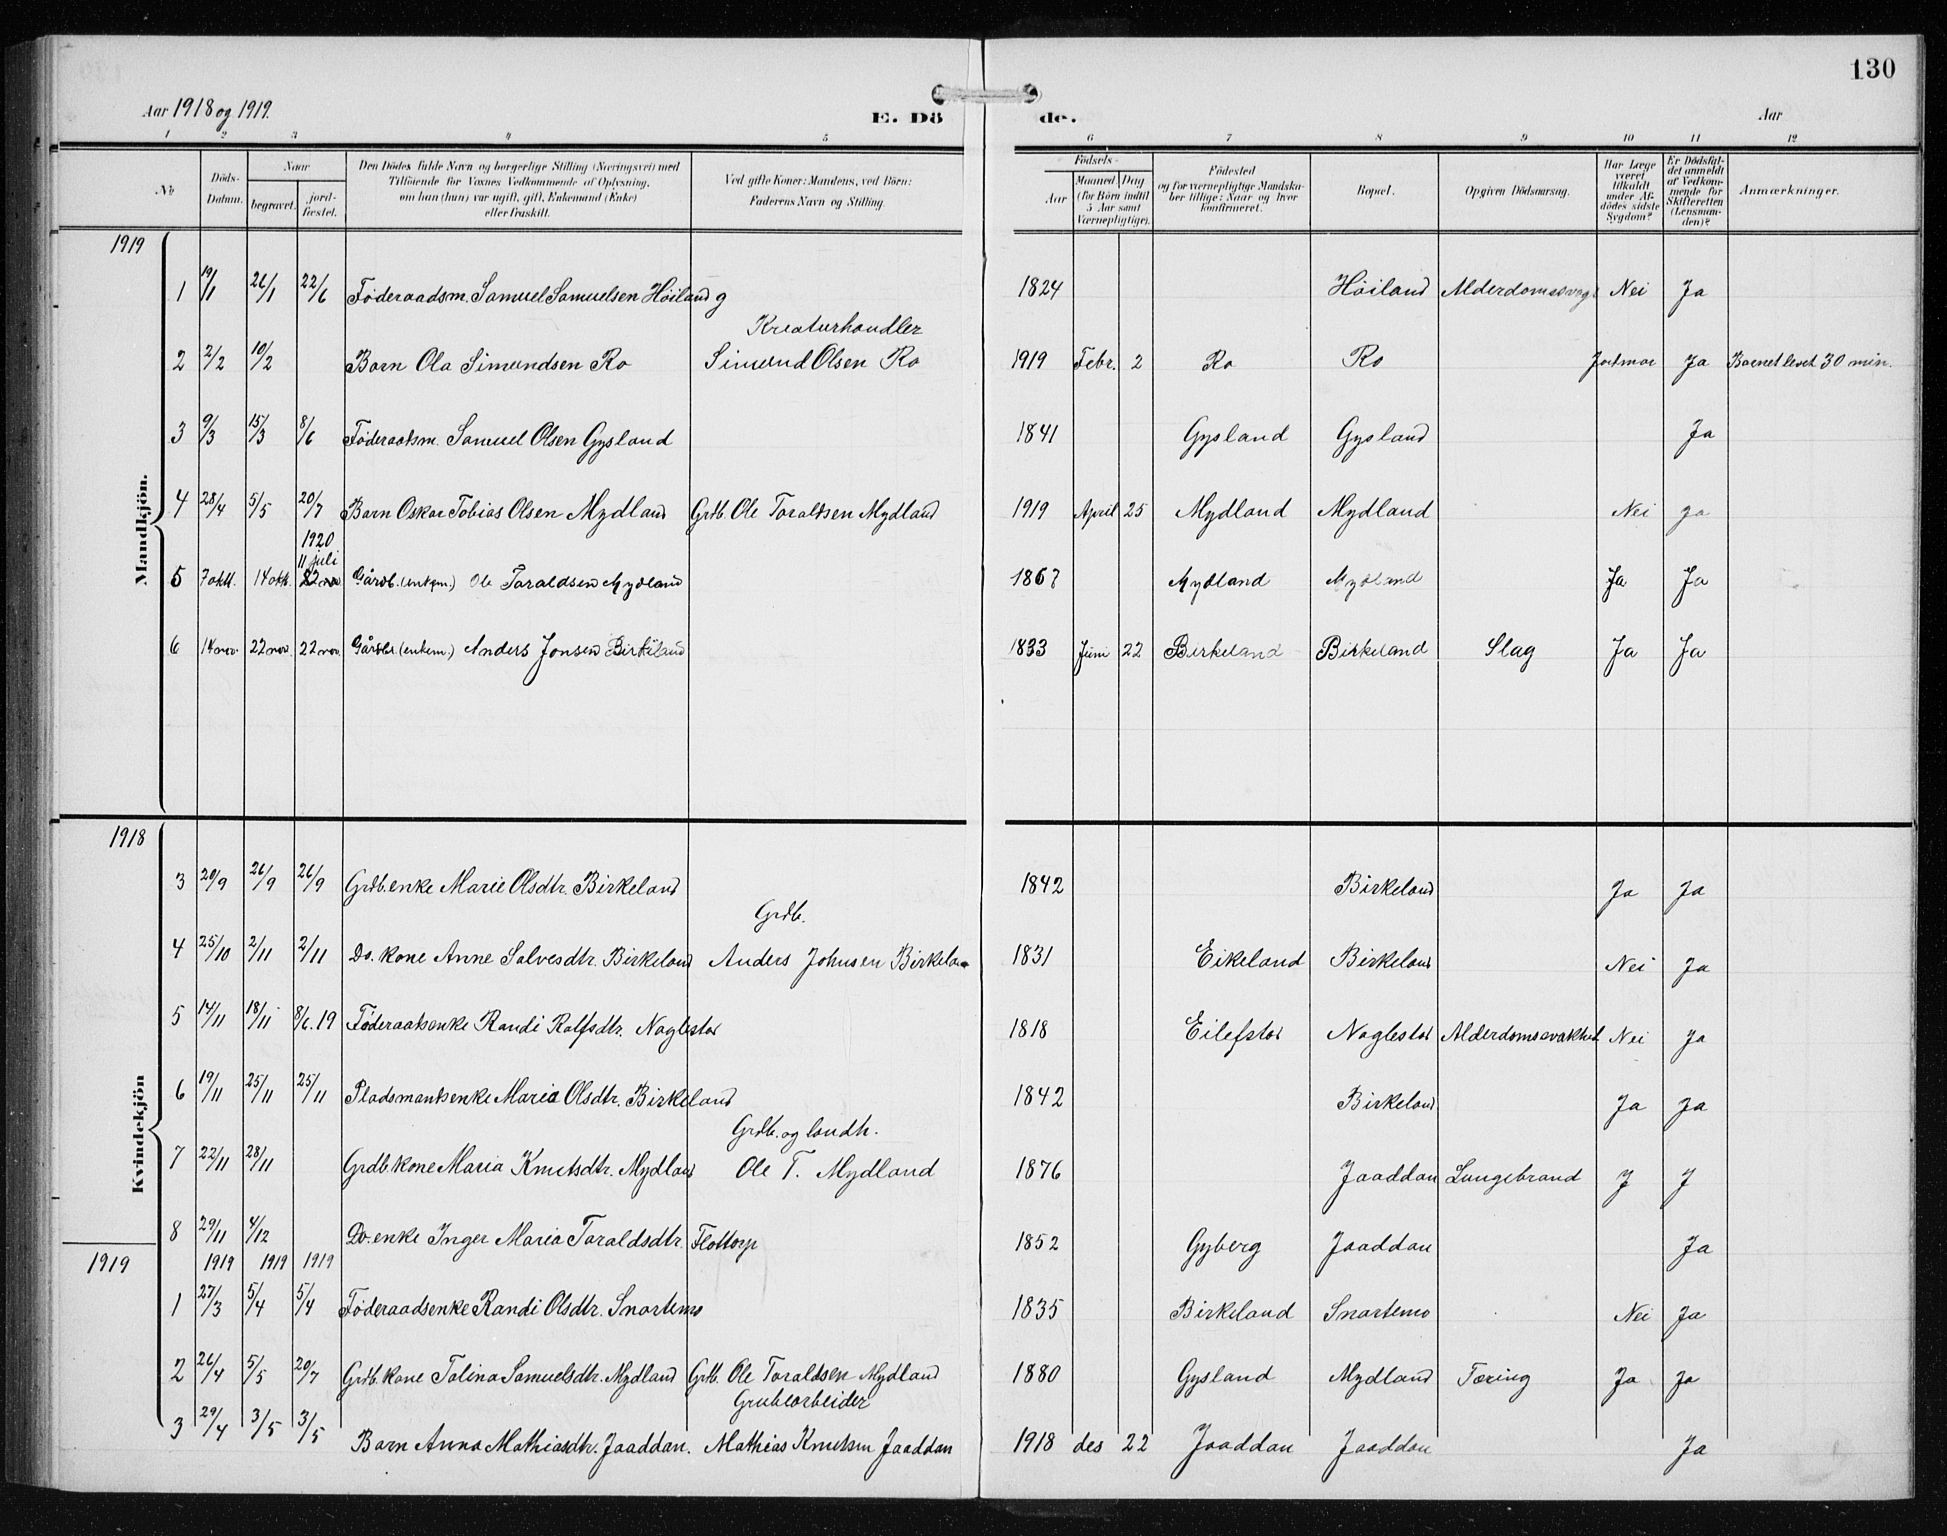 130
Aar 1918 og 1919.
E. Dö de.
Aar
1 2 3 4 5 6 7 8 9 10 11 12
No
Döds-Datum.
Naar
begravet.
jord-fæstet.
Den Dödes fulde Navn og borgerlige Stilling (Næringsvei) med
Tilföiende for Voxnes Vedkommende af Oplysning,
om han (hun) var ugift, gift, Enkemand (Enke)
eller fraskilt.
Ved gifte Koner: Mandens, ved Börn:
Faderens Navn og Stilling.
Födsels-
Aar
Maaned Dag
(for Börn indtil
5 Aar samt
Værnepligtige).
Födested
og for værnepligtige Mandska-
ber tillige: Naar og hvor
konfirmeret.
Bopæl.
Opgiven Dödsaarsag.
Har Læge
været
tilkaldt
under Af-
dödes sidste
Sygdom?
Er Dödsfal-
det anmeldt
af Vedkom-
mende for
Skifteretten
(Lensman-
den)?
Anmærkninger.
1919
Mandkjön.
1 19/1 26/1 22/6 Føderaadsm. Samuel Samuelsen Höiland g 1824 Höiland Alderdomssvag Nei Ja
Kreaturhandler
2 2/2 10/2 Barn Ola Simundsen Ro Simund Olsen Ro 1919 Febr. 2 Ro Ro Jordmor Ja Barnet levet 30 min.
3 9/3 15/3 8/6 Føderaadsm. Samuel Olsen Gysland 1841 Gysland Gysland Ja
4 28/4 5/5 20/7 Barn Oskar Tobias Olsen Mydland Grdb. Ole Toraldsen Mydland 1919 April 25 Mydland Mydland Nei ja
1920
11 juli
5 7 okt. 14 okt. 22 nov Gårdb. (enkem.) Ole Taraldsen Mydland 1867 Mydland Mydland Ja Ja
6 14 nov. 22 nov. 22 nov. Gårdbr. (enkem.) Anders Jonsen Birkeland 1833 Juni 22 Birkeland Birkeland Slag Ja Ja
1918
Kvindekjön
3 20/9 26/9 26/9 Grdb. enke Marie Olsdtr. Birkeland 1842 Birkeland Ja Ja
Grdb.
4 25/10 2/11 2/11 Do. kone Anne Salvesdtr. Birkeland Anders Johnsen Birkeland 1831 Eikeland Birkeland Nei Ja
5 14/11 18/11 8/6.19 Føderaadsenke Randi Rolfsdtr. Naglestad 1818 Eilefstad Naglestad Alderdomssvakhed Nei Ja
6 19/11 25/11 25/11 Pladsmandsenke Maria Olsdtr. Birkeland 1842 Birkeland Ja Ja
Grdb. og landh.
7 22/11 28/11 Grdb. kone Maria Knutsdtr. Mydland Ole T. Mydland 1876 Jaaddan Lungebrand J J
8 29/11 4/12 Do. enke Inger Maria Taraldsdtr. Flottorp 1852 Gyberg Jaaddan Ja
1919 1919 1919 1919
1 27/3 5/4 5/4 Føderaadsenke Randi Olsdtr. Snartemo 1835 Birkeland Snartemo Nei Ja
2 26/4 5/5 20/7 Grdb. kone Tolina Samuelsdtr. Mydland Grdb. Ole Toraldsen Mydland 1880 Gysland Mydland Tæring Ja Ja
Grubearbeider
3 29/4 3/5 3/5 Barn Anna Mathiasdtr. Jaaddan. Mathias Knutsen Jaaddan 1918 des 22 Jaaddan Jaaddan Ja